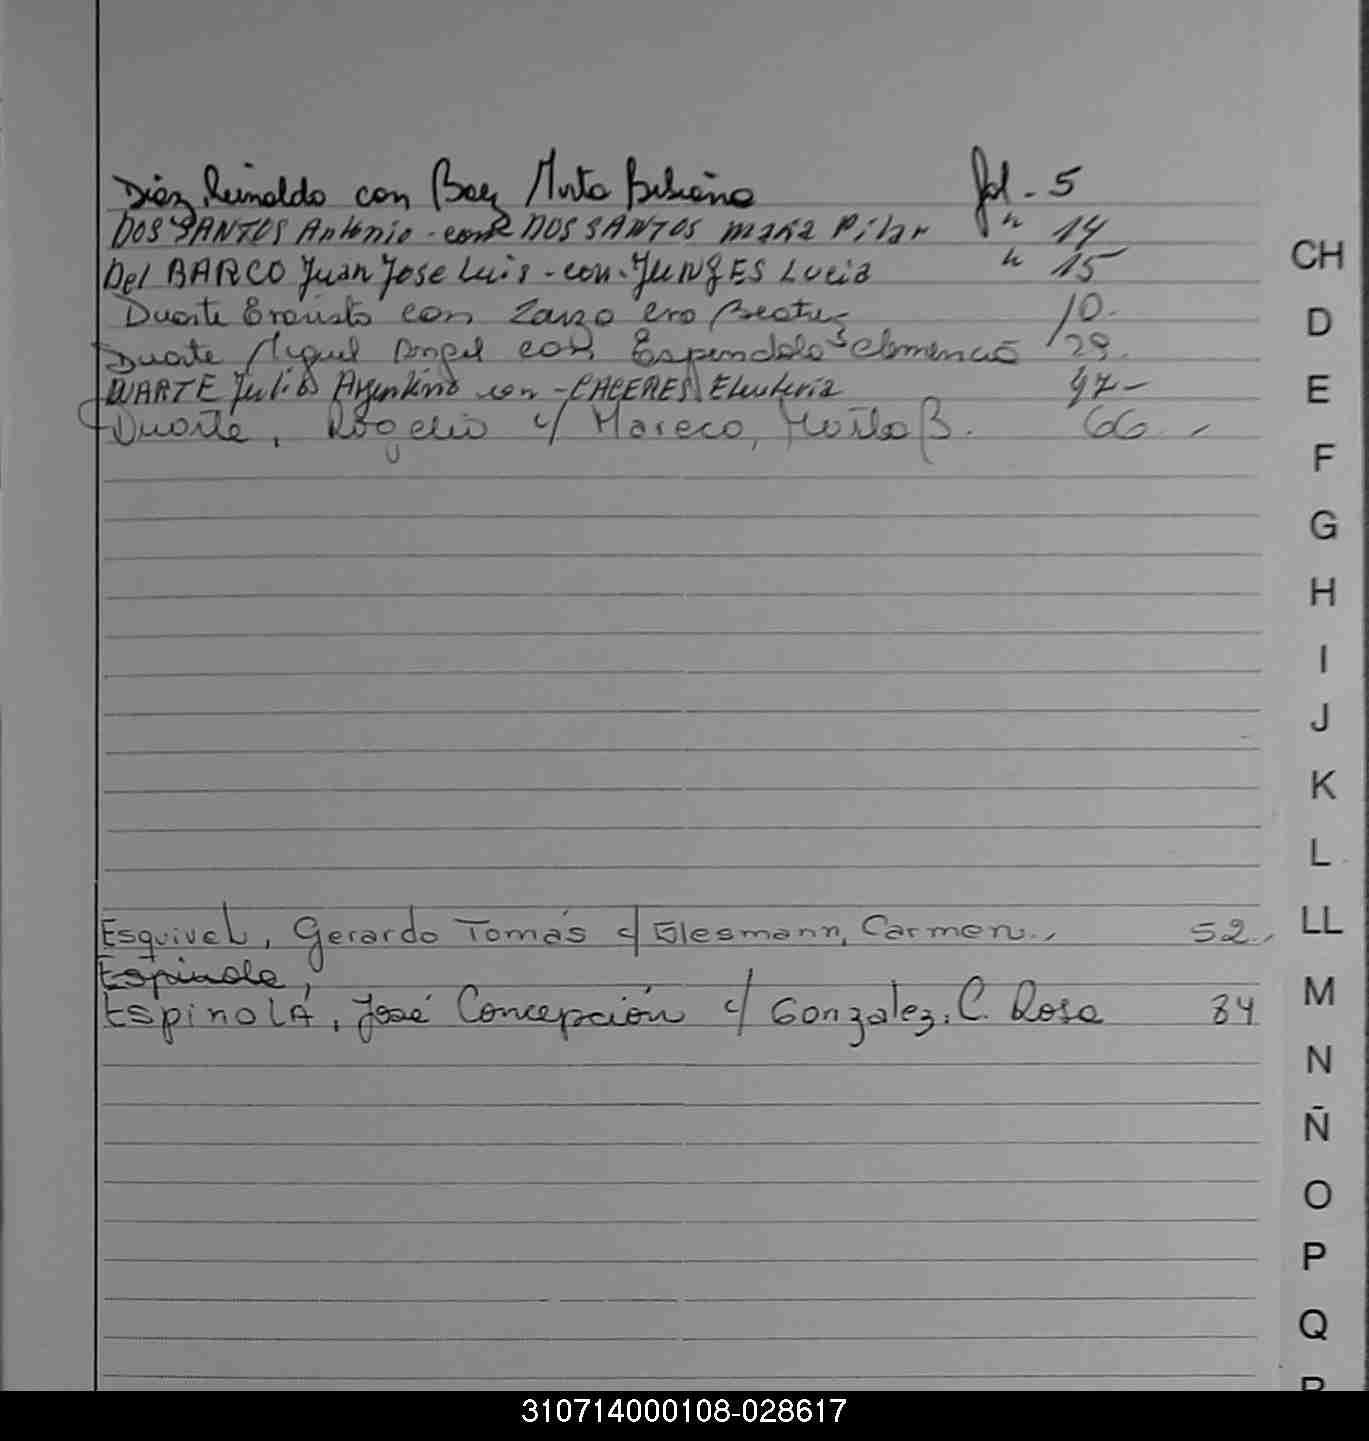 Diaz, Reinaldo con Baez Mirta Bibiana Fol - 5
DOS SANTOS Antonio - con DOS SANTOS Maria Pilar " 14
Del BARCO Juan Jose Luis - con - JUNGES Lucia " 15
Duarte Evaristo con 10.
Duarte Miguel Angel con Espindola Clemencia 29.
DUARTE Julio Argentino con - CACERES Eleuteria 47-
Duarte, Rogelio c/ Mareco, B. 66. -
Esquivel, Gerardo Tomás c/ Glesmann, Carmen.. 52.
Espinola,
EspinolA, José Concepción c/ Gonzalez, C. Rosa 84
CH
D
E
F
G
H
I
J
K
L
LL
M
N
Ñ
O
P
Q
R
310714000108-028617